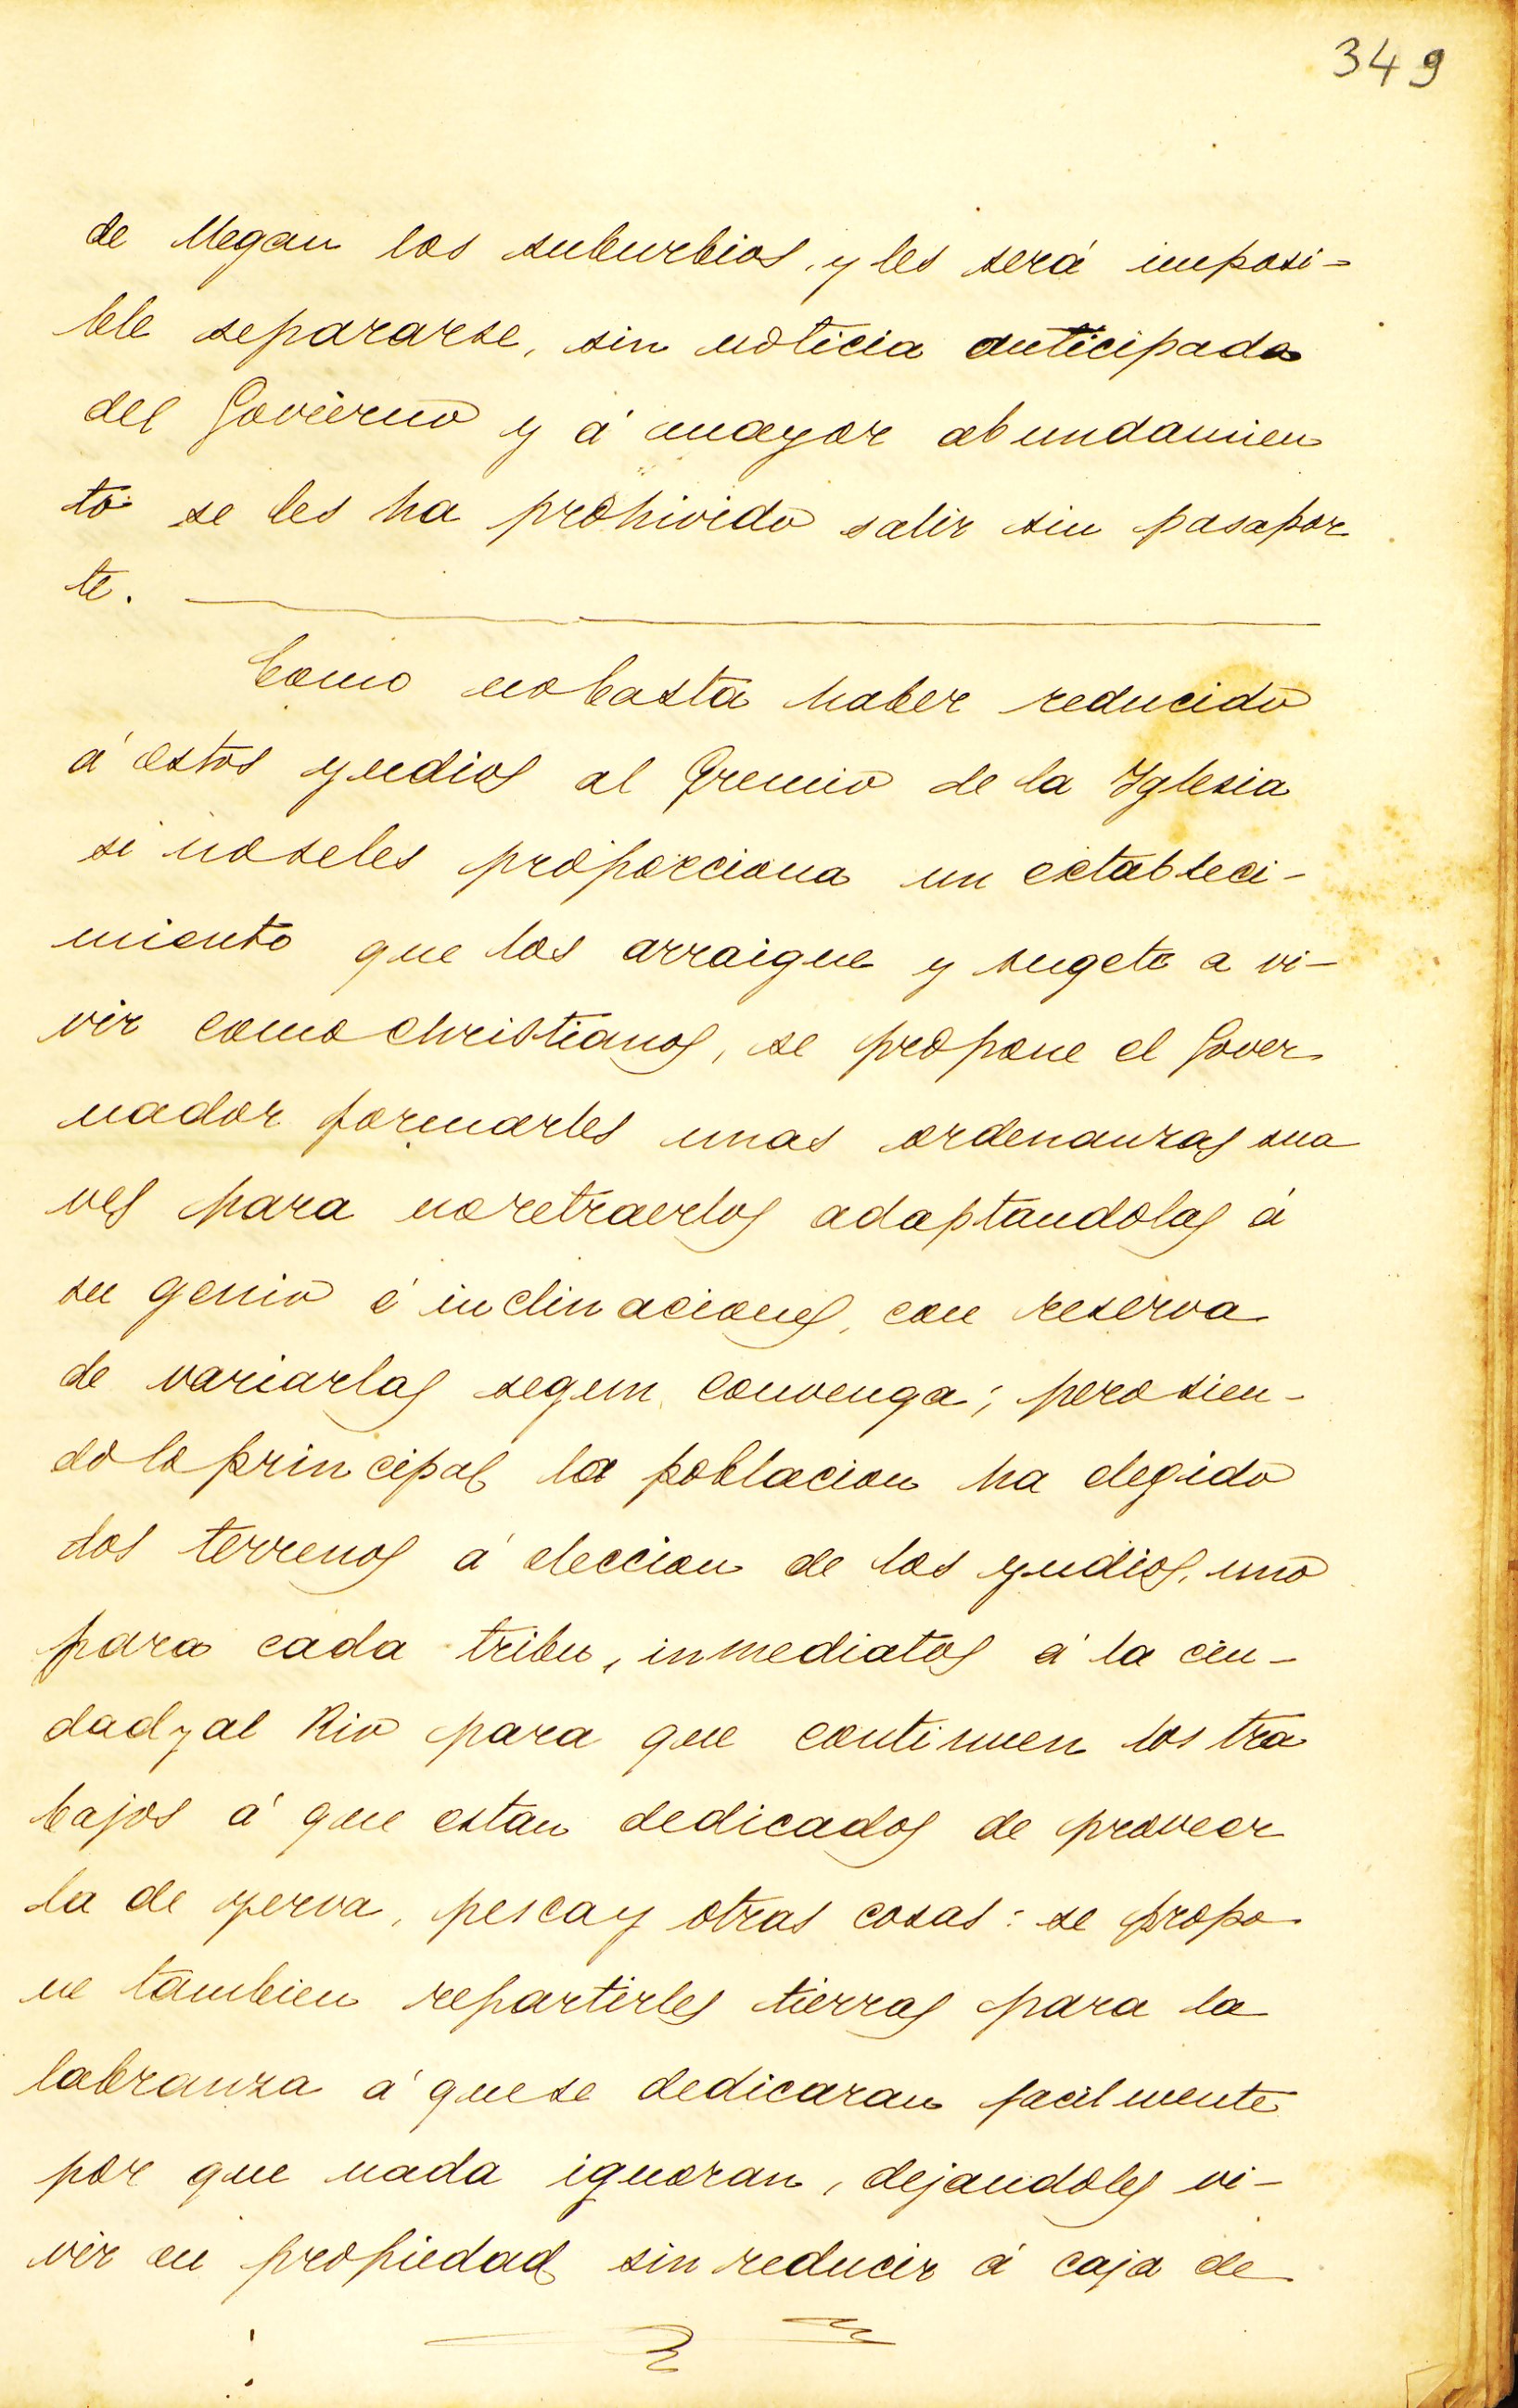 349
de llegan los suburbios, y les será imposi-
ble separarse, sin noticia anticipada
del Govierno y á mayor abundamien
to se les ha prohivido salir sin pasapor
te.
Como nobasta haber reducido
á estos yudios al Gremio de la Yglesia
si noseles proporciona un estableci-
miento que los arraigue y sugete a vi-
vir comochristianos, se propone el Gover
nador formarles unas ordenanzas sua
ves para noretraerlos adaptandolas á
su genio é inclinaciones, con reserva
de variarlas segun convenga; perosien-
dolo principal la poblacion ha elegido
dos terrenos á eleccion de los yudios, uno
para cada tribu, inmediatos á la ciu-
dad y al Rio para que continuen los tra
bajos á que estan dedicados de proveer
la de yerva, pesca y otras cosas: se propo
ne tambien repartirles tierras para la
labranza á quese dedicaran facilmente
por que nada ignoran, dejandoles vi-
vir en propiedad sin reducir á caja de